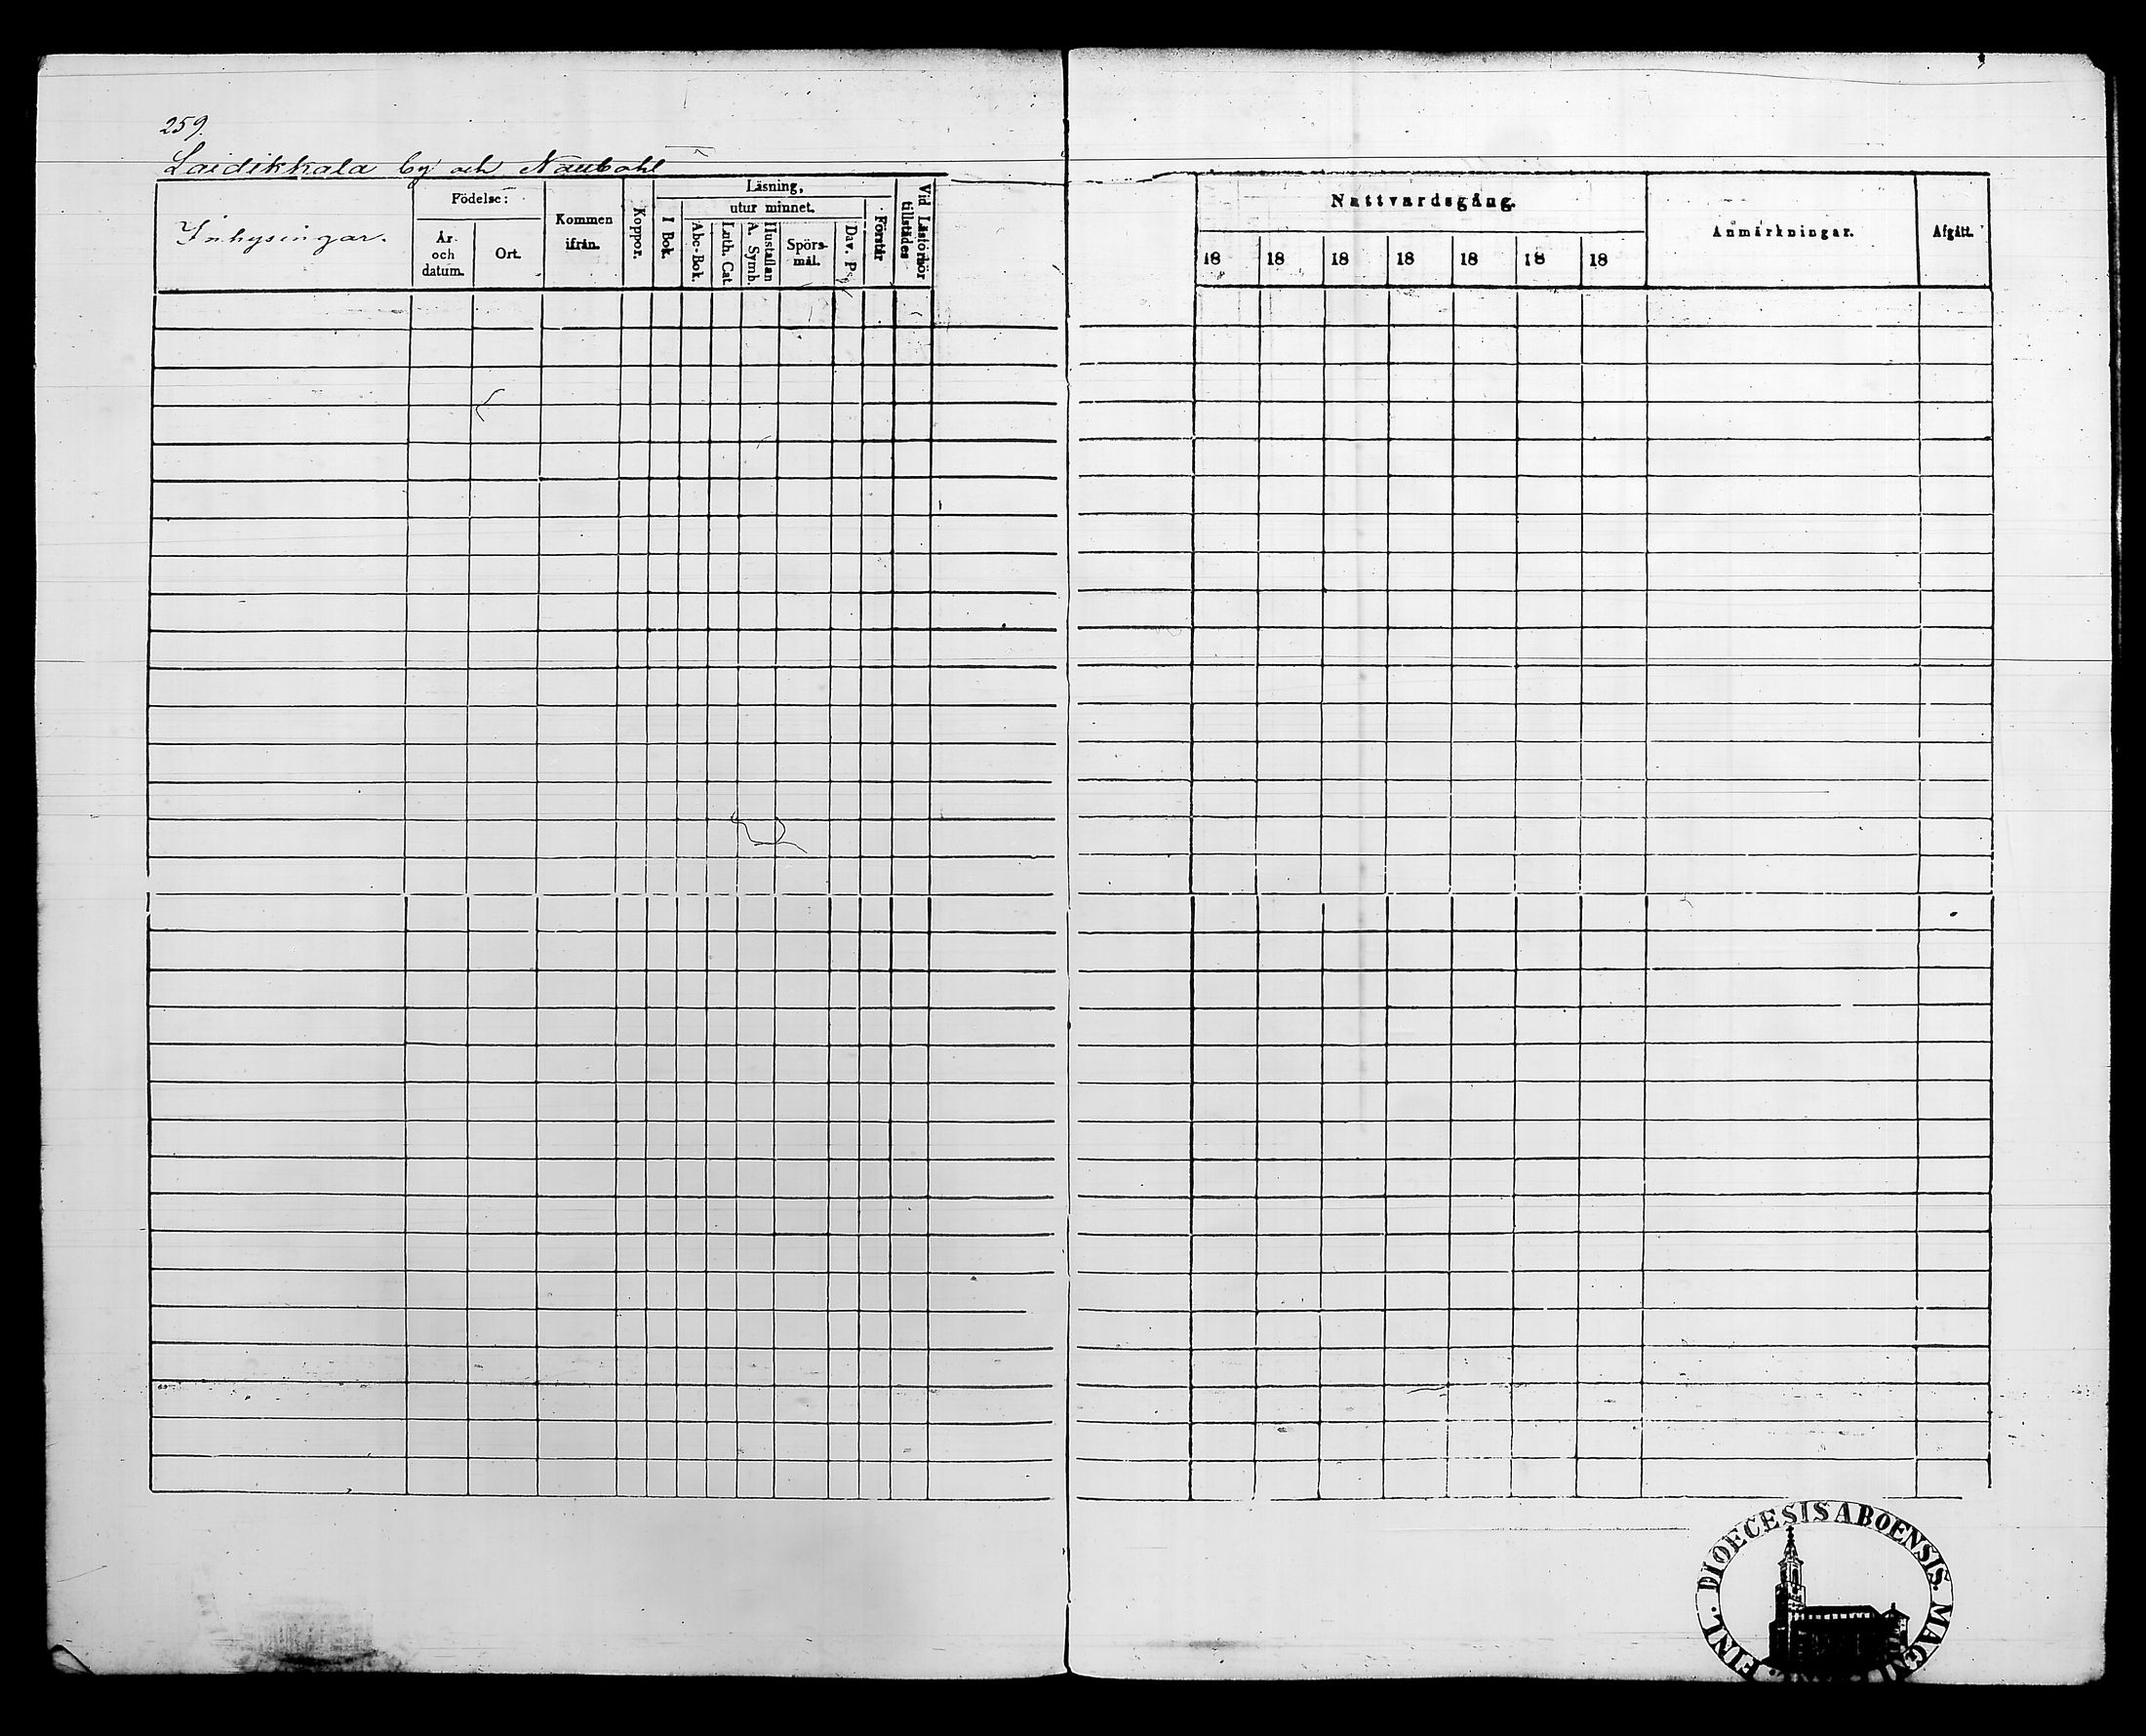 259.
Laidikkala by och Naubohl
Inhysingar.
Födelse:
År och datum.
Ort.
Kommen ifrån.
Koppor.
Läsning,
I Bok.
utur minnet.
Abc-Bok.
Luth. Cat.
A. Symb. Hustaflan
Spörsmål.
Dav. Ps.
Förstår
Vid Läsförhör tillstädes
Nattvardsgång.
18 18 18 18 18 18 18
Anmärkningar.
Afgått.
FINL. DIOECESIS ABOENSIS. MAGNI